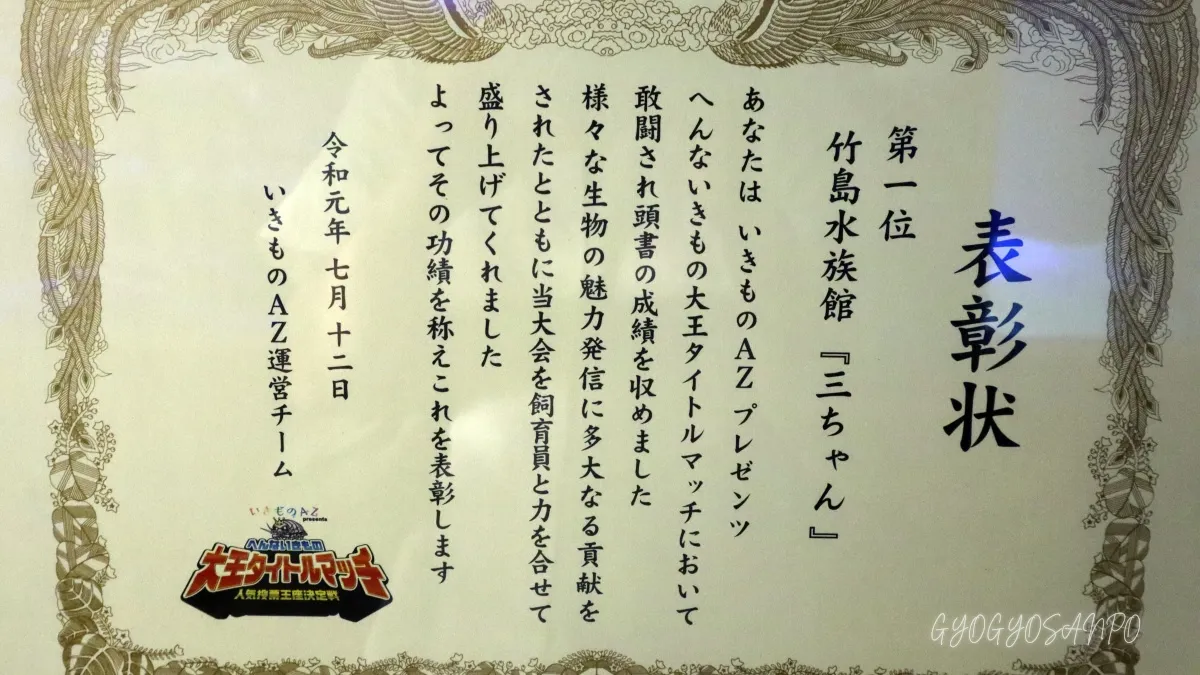 表彰状
第一位
竹島水族館 『三ちゃん』
あなたは いきものAZ プレゼンツ
へんないきもの大王タイトルマッチにおいて
敢闘され頭書の成績を収めました
様々な生物の魅力発信に多大なる貢献を
されたとともに当大会を飼育員と力を合せて
盛り上げてくれました
よってその功績を称えこれを表彰します
令和元年 七月 十二日
いきものAZ運営チーム
いきものAZ
presents
へんないきもの
大王タイトルマッチ
人気投票王座決定戦
GYOGYOSANPO